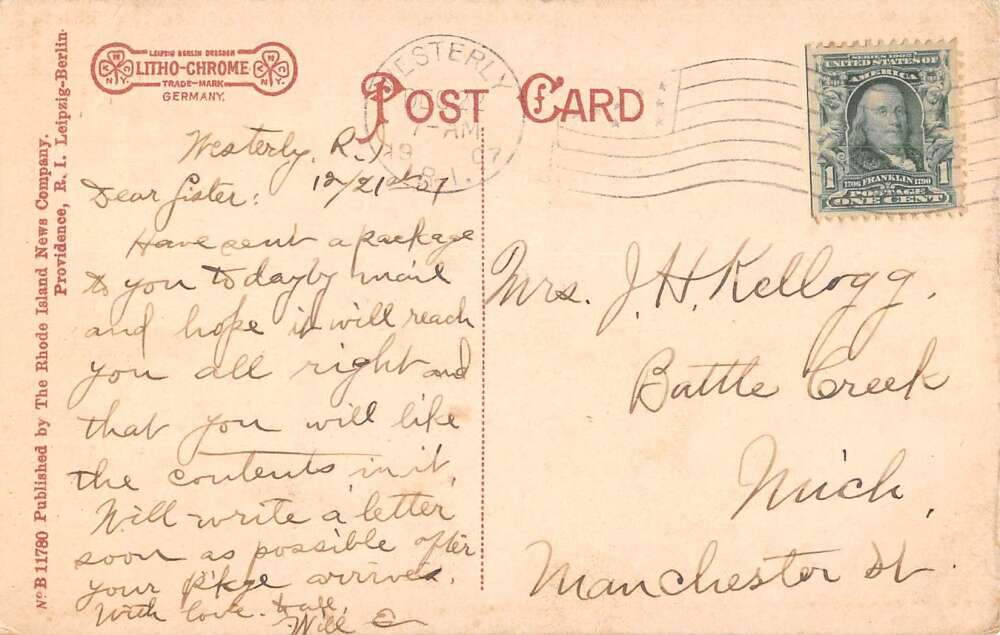 LEIPZIG BERLIN DRESDEN
LITHO-CHROME
TRADE-MARK
GERMANY.
N.Y.
POST CARD
WESTERLY
DEC 22
7-AM
19 07
R.I.
SERIES 1902
UNITED STATES OF
AMERICA
1706 FRANKLIN 1790
1 POSTAGE 1
ONE CENT
No B 11780 Published by The Rhode Island News Company.
Providence, R. I. Leipzig-Berlin.
Westerly, R.I
12/21st 07
Dear Sister:
Have sent a package
to you to day by mail
and hope it will reach
you all right and
that you will like
the contents in it,
Will write a letter
soon as possible after
your p'kge arrives.
With love to all,
Will
Mrs. J. H. Kellogg.
Battle Creek
Mich,
Manchester St.